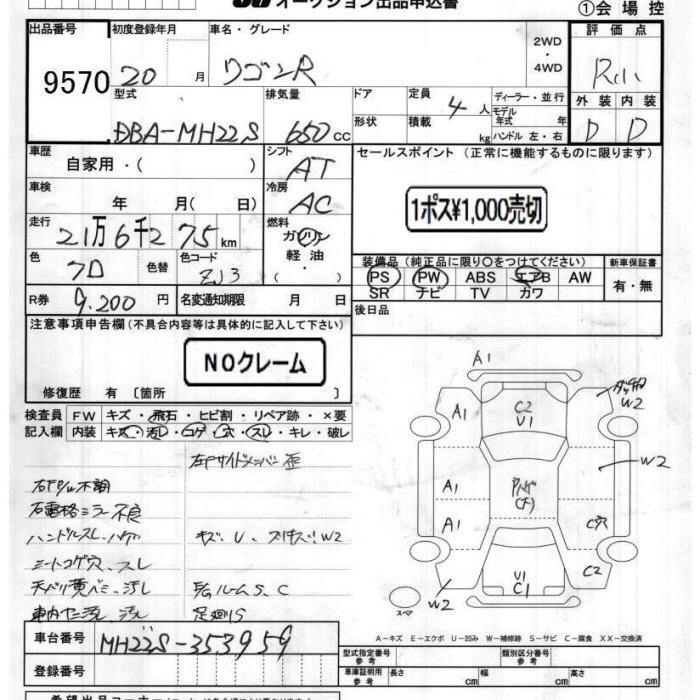 オークション出品申込書
①会場控
出品番号 初度登録年月 車名・グレード 2WD ・4WD 評価点
9570 20 月 ワゴンR R小
型式 排気量 ドア 定員 4 人 ディーラー・並行 外装 内装
DBA-MH22S 650 cc 形状 積載 kg モデル年式 年 ハンドル 左・右 D D
車歴 自家用・( ) シフト AT セールスポイント (正常に機能するものに限ります)
車検 年 月( 日) 冷房 AC 1ポス¥1,000売切
走行 21万6千275 km 燃料 ガソリン 軽油
色 色替 色コード ZJ3 装備品 (純正品に限り○をつけてください) 新車保証書
PS PW ABS エアB AW 有・無
SR ナビ TV カワ
R券 9,200 円 名変通知期限 月 日 後日品
注意事項申告欄(不具合内容等は具体的に記入して下さい)
NOクレーム
修復歴 有 〔箇所 〕
検査員記入欄 FW キズ・飛石・ヒビ割・リペア跡・×要
内装 キズ・汚レ・コゲ・穴・スレ・キレ・破レ
左Fサイドメンバー歪
不調
右電格ミラー不良
ハンドルスレ
シートコゲ穴、スレ キズ、U、 W2
天バリ黄バミ、汚レ ルームS、C
車内 汚レ 足廻りS
A1
A1 C2 U1 W2
W2
A1
A1 C穴
C2
U1 C1
W2
スペア
A-キズ E-エクボ U-凹み W-補修跡 S-サビ C-腐食 XX-交換済
車台番号 MH22S-353959
登録番号
型式指定番号 参考 類別区分番号 参考
車庫証明用 参考 長さ cm 幅 cm 高さ cm